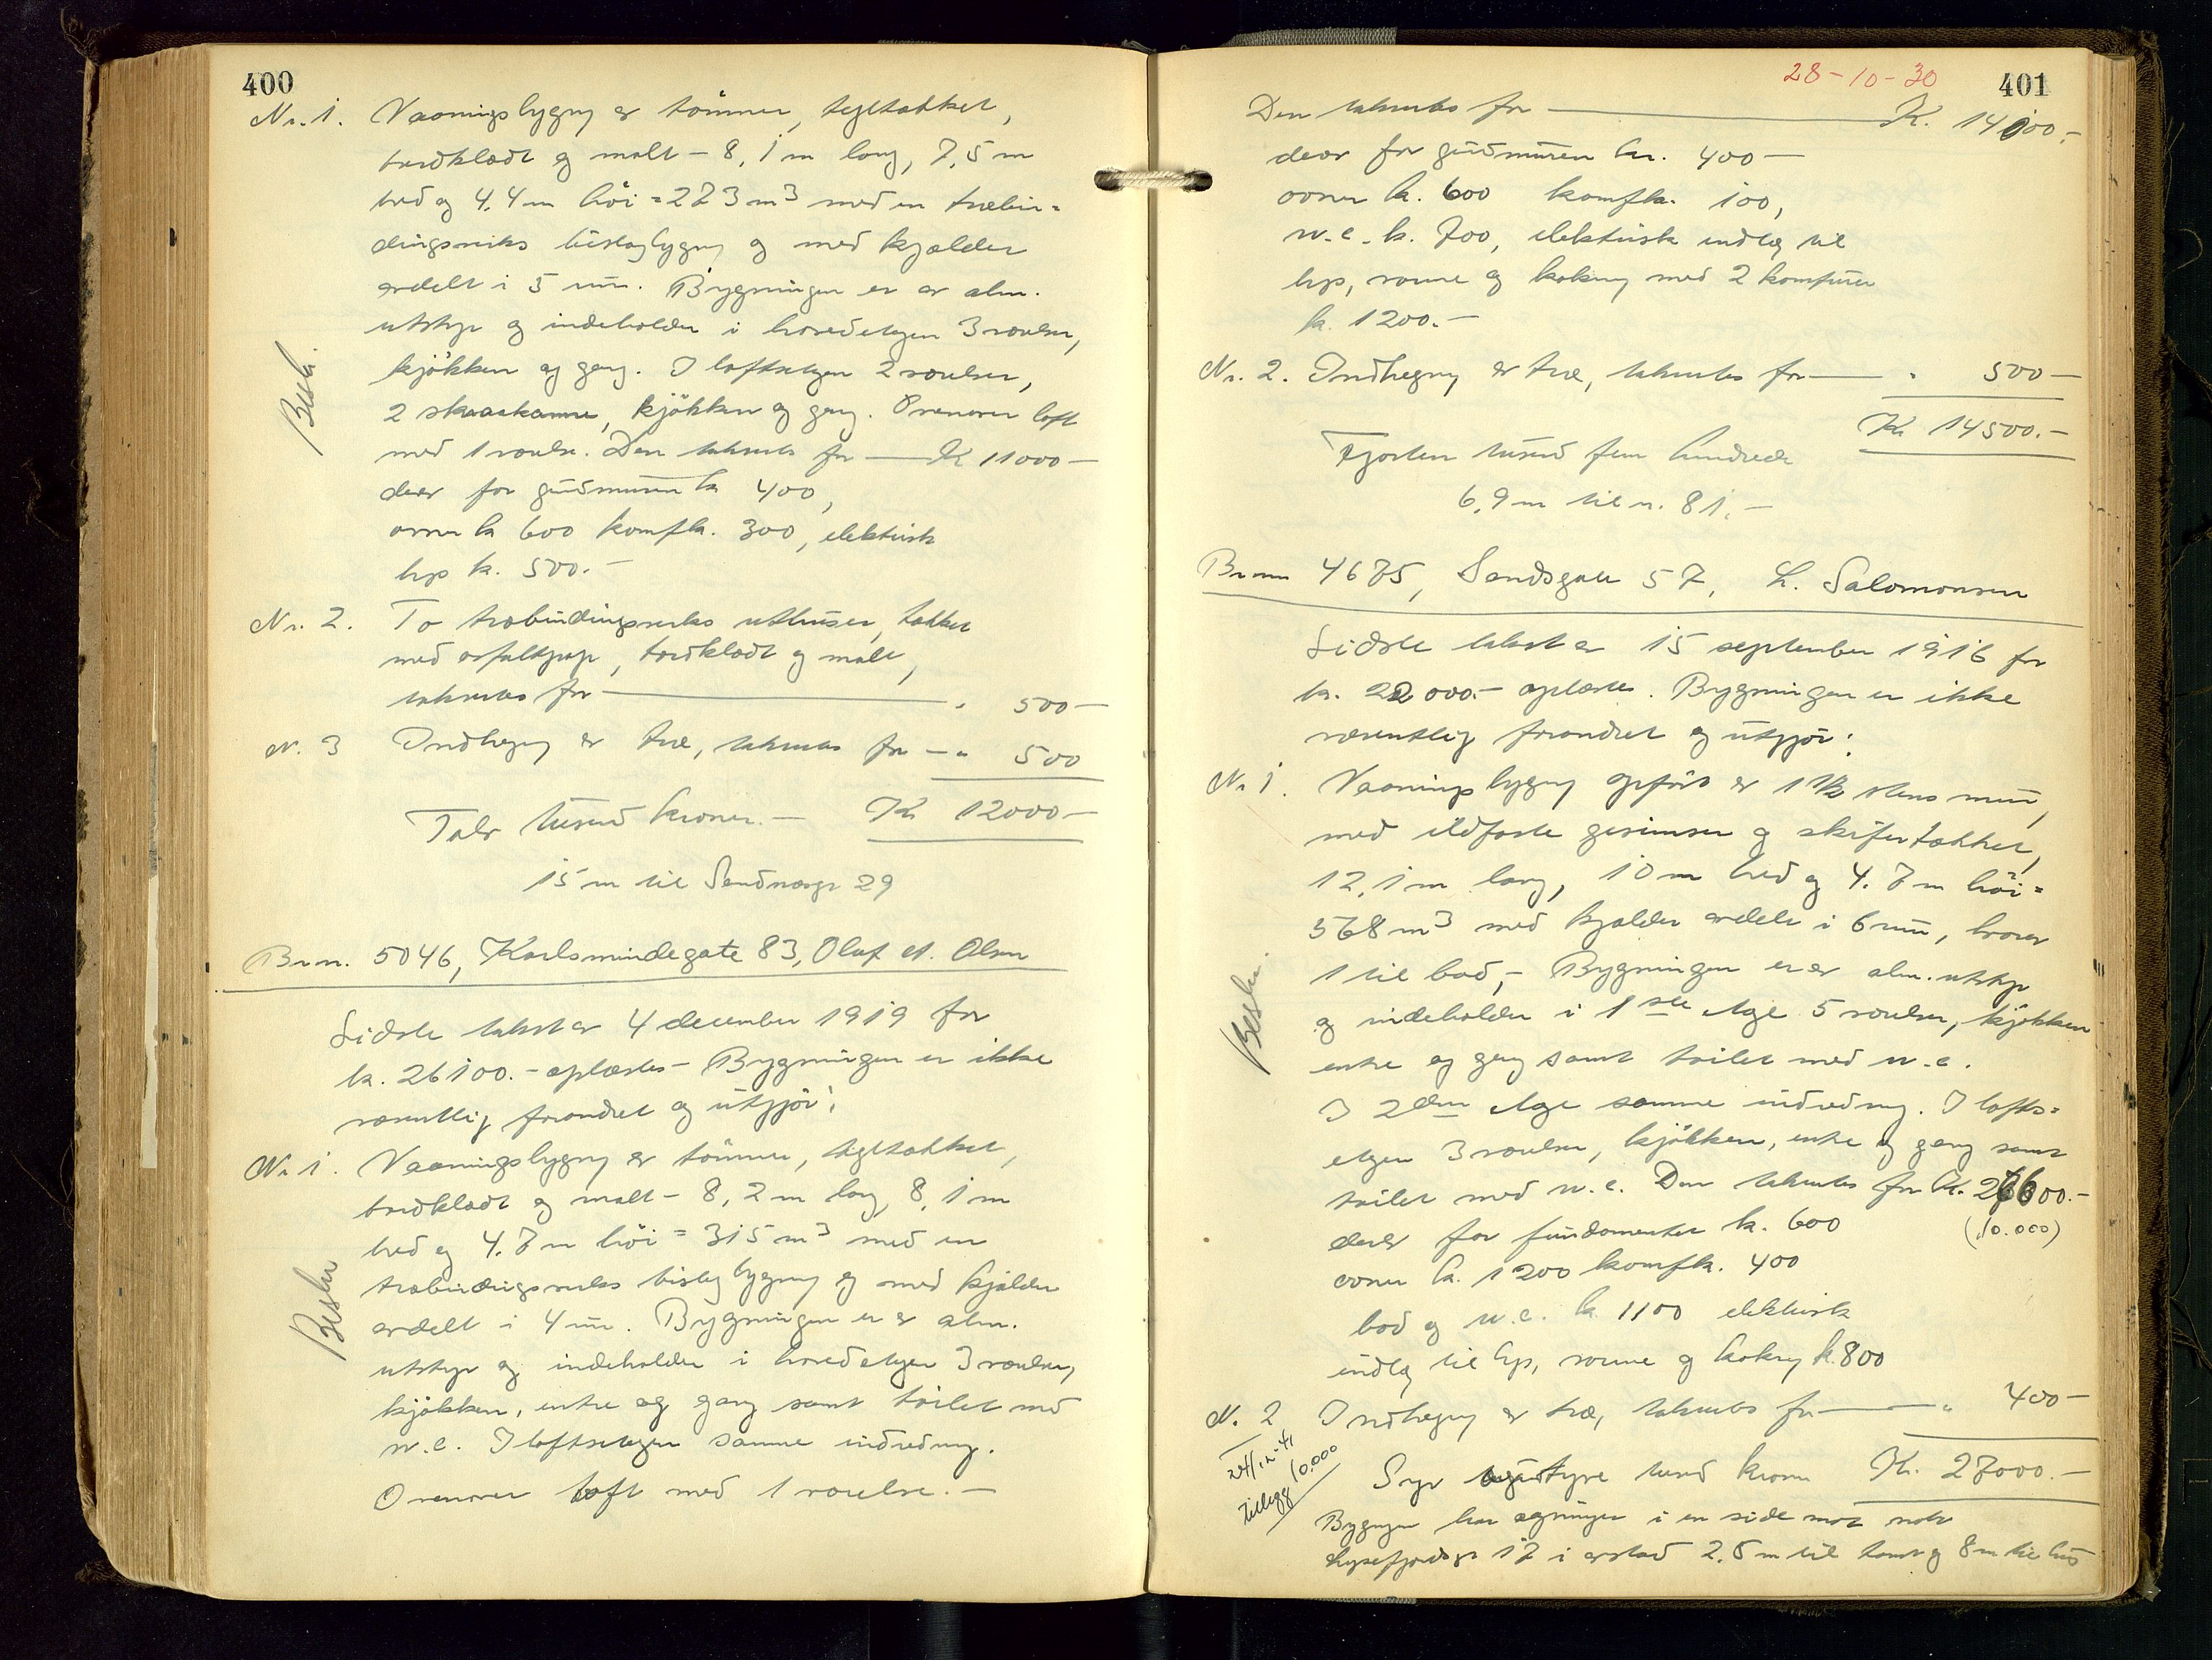 400
Nr. 1. Vaaningsbygng av tömmer, tegltækket,
bordklædt og malt – 8,1 m lang, 7,5 m
bred og 4.4 m höi = 273 m³ med en træbin-
dingsverks bislagbygng og med kjælder
avdelt i 5 rum. Bygningen er av alm.
utstyr og indeholder i hovedetagen 3 værelser,
kjökken og gang. I loftsetagen 2 værelser,
2 skraakammer, kjökken og gang. Ovenover loft
med 1 værelse. Den takseres for — Kr 11000 —
derav for grundmuren kr 400,
ovner kr 600 komf kr. 300, elektrisk
lys kr. 500.–
Beskr.
Nr. 2. To træbindingsverks uthuser, tækket
med asfaltpap, bordklædt og malt,
takseres for — " 500 —
Nr. 3 Indhegng av træ, takseres for — " 500
Tolv tusend kroner. — Kr 12000 —
15 m til Sandnæsgt 29
Br.nr. 5046, Karlsmindegate 83, Oluf A. Olsen
Sidste takst av 4 december 1919 for
kr. 26100.– oplæstes – Bygningen er ikke
væsentlig forandret og utgjör:
Nr 1. Vaaningsbygng av tömmer, tegltækket,
bordklædt og malt – 8,2 m lang, 8,1 m
bred og 4.7 m höi = 315 m³ med en
træbindingsverks bislagbygng og med kjælder
avdelt i 4 rum. Bygningen er av alm.
utstyr og indeholder i hovedetagen 3 værelser,
kjökken, entre og gang samt toilet med
w.c. I loftsetagen samme indredning.
Ovenover loft med 1 værelse. —
Beskr
28-10-30
401
Den takseres for — Kr. 14000.–
derav for grundmuren kr. 400 —
ovner kr. 600 komf kr. 100,
w.c. kr. 700, elektrisk indlæg til
lys, varme og kokning med 2 komfurer
kr. 1200.–
Nr. 2. Indhegng av træ, takseres for — " 500 —
Kr 14500.–
Fjorten tusend fem hundrede
6,9 m til nr. 81. —
Br.nr 4675, Sandsgate 57, L. Salomonsen
Sidste takst av 15 september 1916 for
kr. 22000.– oplæstes. Bygningen er ikke
væsentlig forandret og utgjör:
Nr 1. Vaaningsbygng opført av 1 1/2 stens mur,
med ildfaste gesimser og skifertækket,
12,1 m lang, 10 m bred og 4.7 m höi =
568 m³ med kjælder avdelt i 6 rum, hvorav
1 til bad, – Bygningen er av alm. utstyr
og indeholder i 1ste etage 5 værelser, kjökken
entre og gang samt toilet med w.c.
I 2den etage samme indredning. I lofts-
etagen 3 værelser, kjökken, entre og gang samt
toilet med w.c. Den takseres for Kr. 26600.–
derav for fundamentet kr. 600 (10.000)
ovner kr. 1200 komf kr. 400
bad og w.c. kr 1100 elektrisk
indlæg til lys, varme og kokng kr. 800
Beskr.
Nr. 2 Indhegng av træ, takseres for — " 400 —
24/12-41
Tillegg 10.000
Syv og tyve tusend kroner Kr. 27000.–
Bygngen har aapninger i en side mot nabo
Lysefjordsgt 17 i avstand 2.5 m til tomt og 8 m til hus